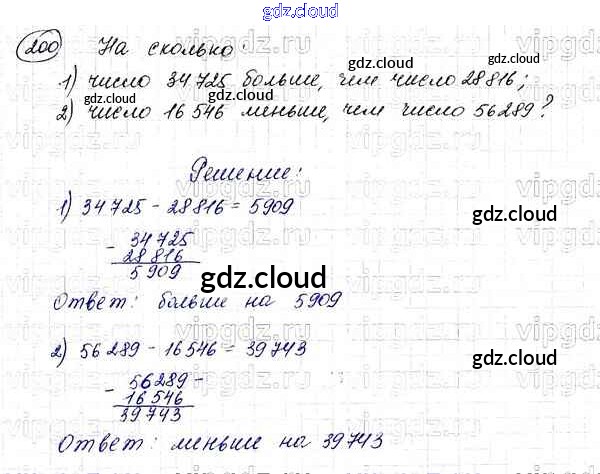 gdz.cloud
200 На сколько:
gdz.cloud
1) число 34 725 больше, чем число 28 816;
gdz.cloud gdz.cloud
2) число 16 546 меньше, чем число 56 289?
vipgdz
Решение:
1) 34 725 - 28 816 = 5909
gdz.cloud
- 34 725
28 816
5 909
gdz.cloud
Ответ: больше на 5909
2) 56 289 - 16 546 = 39 743
gdz.cloud
- 56 289 -
16 546
39 743
gdz.cloud
Ответ: меньше на 39 743